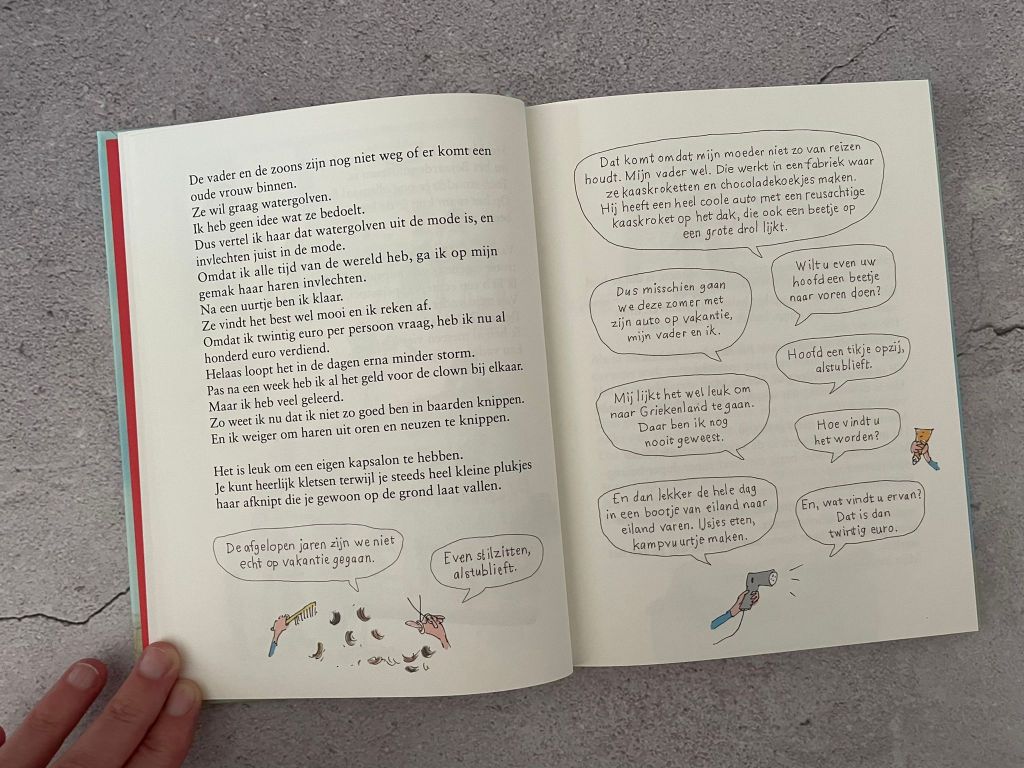 De vader en de zoons zijn nog niet weg of er komt een
oude vrouw binnen.
Ze wil graag watergolven.
Ik heb geen idee wat ze bedoelt.
Dus vertel ik haar dat watergolven uit de mode is, en
invlechten juist in de mode.
Omdat ik alle tijd van de wereld heb, ga ik op mijn
gemak haar haren invlechten.
Na een uurtje ben ik klaar.
Ze vindt het best wel mooi en ik reken af.
Omdat ik twintig euro per persoon vraag, heb ik nu al
honderd euro verdiend.
Helaas loopt het in de dagen erna minder storm.
Pas na een week heb ik al het geld voor de clown bij elkaar.
Maar ik heb veel geleerd.
Zo weet ik nu dat ik niet zo goed ben in baarden knippen.
En ik weiger om haren uit oren en neuzen te knippen.
Het is leuk om een eigen kapsalon te hebben.
Je kunt heerlijk kletsen terwijl je steeds heel kleine plukjes
haar afknipt die je gewoon op de grond laat vallen.
De afgelopen jaren zijn we niet
echt op vakantie gegaan.
Even stilzitten,
alstublieft.
Dat komt omdat mijn moeder niet zo van reizen
houdt. Mijn vader wel. Die werkt in een fabriek waar
ze kaaskroketten en chocoladekoekjes maken.
Hij heeft een heel coole auto met een reusachtige
kaaskroket op het dak, die ook een beetje op
een grote drol lijkt.
Wilt u even uw
hoofd een beetje
naar voren doen?
Dus misschien gaan
we deze zomer met
zijn auto op vakantie,
mijn vader en ik.
Hoofd een tikje opzij,
alstublieft.
Mij lijkt het wel leuk om
naar Griekenland te gaan.
Daar ben ik nog
nooit geweest.
Hoe vindt u
het worden?
En dan lekker de hele dag
in een bootje van eiland naar
eiland varen. IJsjes eten,
kampvuurtje maken.
En, wat vindt u ervan?
Dat is dan
twintig euro.